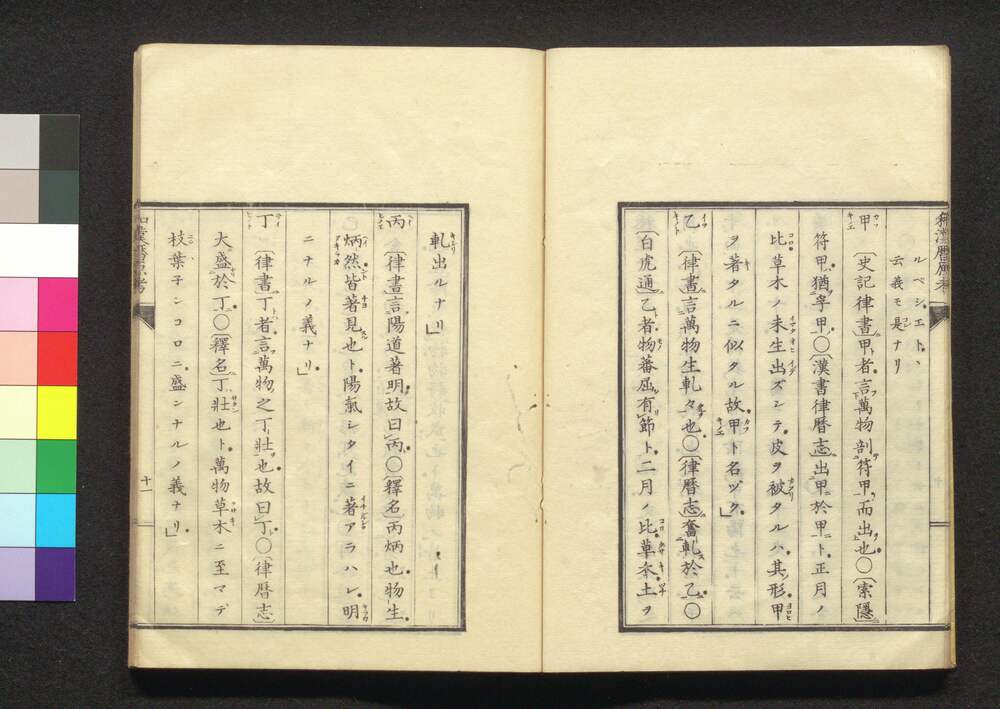 ルベシ。エト、
云義モ是ナリ
甲〔史記律書〕甲者言萬物剖符甲而出也〇〔索隱〕
符甲猶孚甲〇〔漢書律暦志〕出甲於甲ト正月ノ
比草木ノ未生出ズシテ皮ヲ被タルハ其形甲
ヲ著タルニ似タル故甲ト名ヅク」
乙〔律書〕言萬物生軋々也〇〔律暦志〕奮軋於乙〇
〔白虎通〕乙者物蕃屈有節ト二月ノ比草木土ヲ
軋出ルナリ」
丙〔律書〕言陽道著明故曰丙〇〔釋名〕丙炳也物生
炳然皆著見也ト陽氣シタイニ著アラハレ明
ニナルノ義ナリ」
丁〔律書〕丁者言萬物之丁壯也故曰丁〇〔律暦志〕
大盛於丁〇〔釋名〕丁壯也ト萬物草木ニ至マデ
枝葉子ンコロニ盛ンナルノ義ナリ」
十一